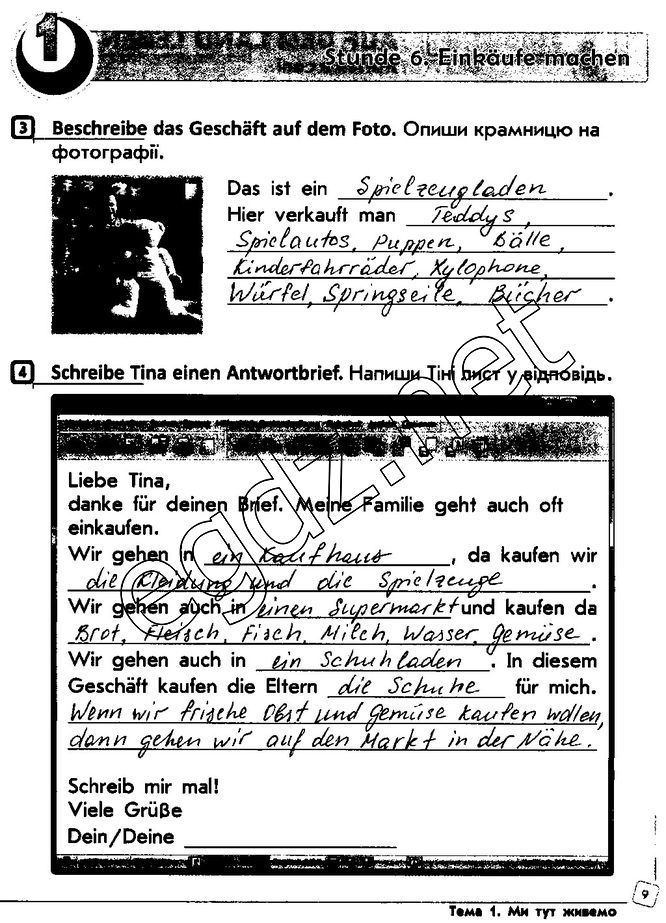 1
Stunde 6. Einkäufe machen
3 Beschreibe das Geschäft auf dem Foto. Опиши крамницю на
фотографії.
Das ist ein Spielzeugladen .
Hier verkauft man Teddys,
Spielautos, Puppen, Bälle,
Kinderfahrräder, Xylophone,
Würfel, Springseile, Bücher .
4 Schreibe Tina einen Antwortbrief. Напиши Тіні лист у відповідь.
Liebe Tina,
danke für deinen Brief. Meine Familie geht auch oft
einkaufen.
Wir gehen in ein Kaufhaus , da kaufen wir
die Kleidung und die Spielzeuge .
Wir gehen auch in einen Supermarkt und kaufen da
Brot, Fleisch, Fisch, Milch, Wasser, Gemüse .
Wir gehen auch in ein Schuhladen . In diesem
Geschäft kaufen die Eltern die Schuhe für mich.
Wenn wir frische Obst und Gemüse kaufen wollen,
dann gehen wir auf den Markt in der Nähe.
Schreib mir mal!
Viele Grüße
Dein/Deine
egdz.net
9
Тема 1. Ми тут живемо